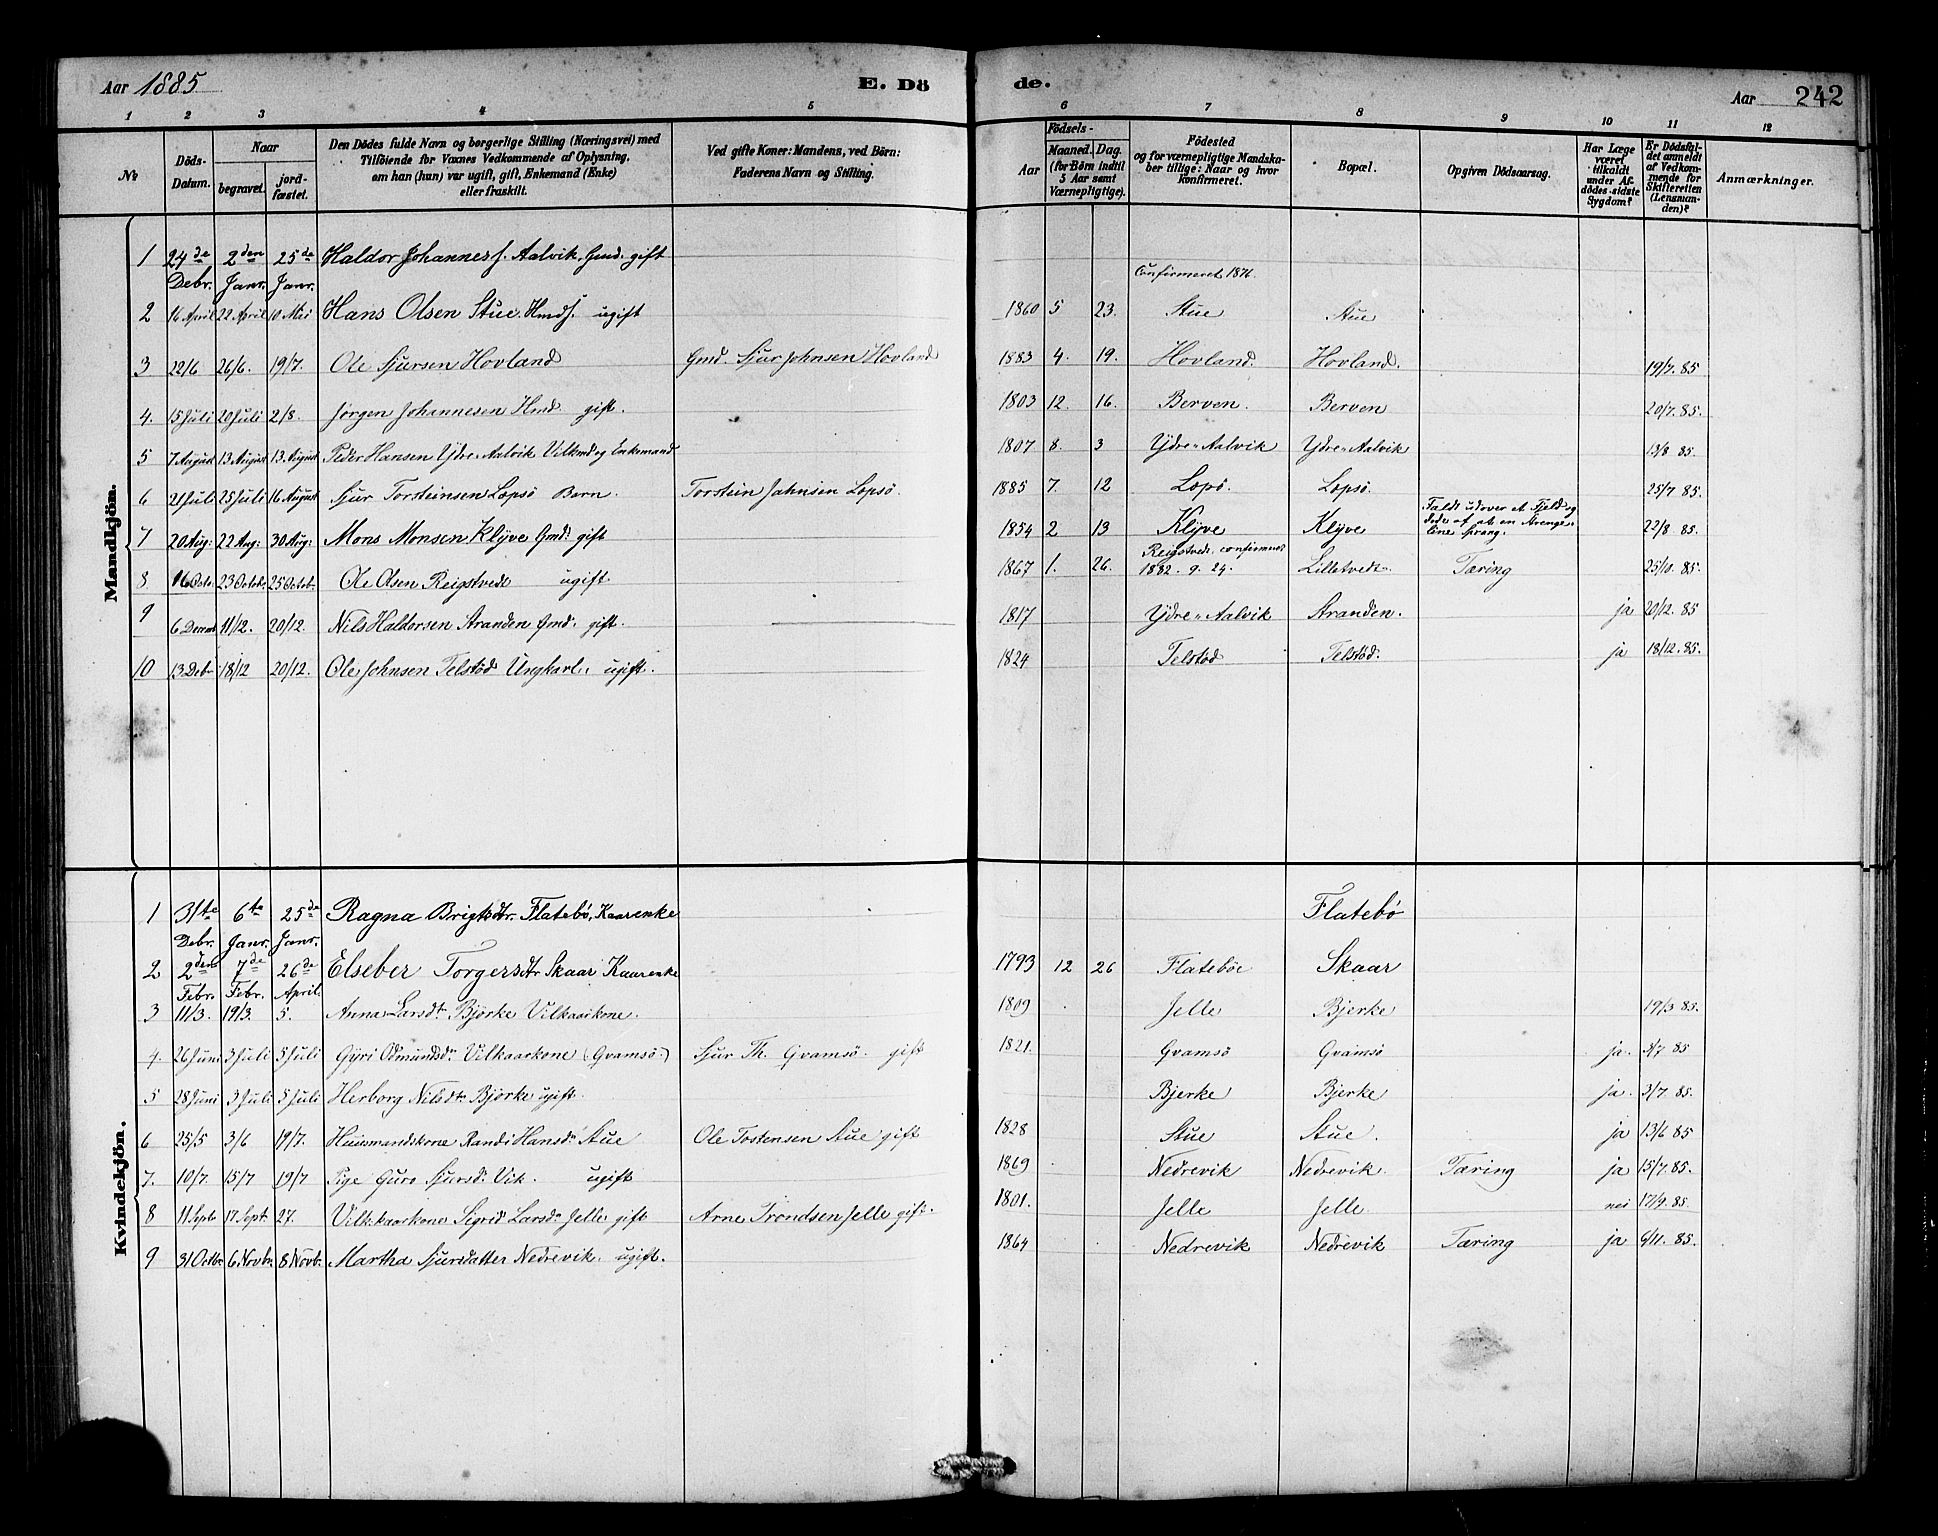 Aar 1885 E. Dö de. Aar 242
1 2 3 4 5 6 7 8 9 10 11 12
No
Döds-Datum.
Naar
begravet.
jord-fæstet.
Den Dödes fulde Navn og borgerlige Stilling (Næringsvei) med
Tilföiende for Voxnes Vedkommende af Oplysning,
om han (hun) var ugift, gift, Enkemand (Enke)
eller fraskilt.
Ved gifte Koner: Mandens, ved Börn:
Faderens Navn og Stilling.
Födsels-
Aar
Maaned. Dag.
(for Börn indtil
5 Aar samt
Værnepligtige).
Födested
og for værnepligtige Mandska-
ber tillige: Naar og hvor
konfirmeret.
Bopæl.
Opgiven Dödsaarsag.
Har Læge
været
tilkaldt
under Af-
dödes sidste
Sygdom?
Er Dödsfal-
det anmeldt
af Vedkom-
mende for
Skifteretten
(Lensman-
den)?
Anmærkninger.
Mandkjön.
1 24de Debr. 2den Janr. 25de Janr. Haldor Johanness. Aalvik, Gmd. gift
Confirmeret 1876.
2 16 April 22 April 10 Mai Hans Olsen Stue. Hmds. ugift 1860 5 23. Stue Stue
3 22/6 26/6. 19/7. Ole Sjursen Hovland Gmd. Sjur Johnsen Hovland 1883 4. 19. Hovland. Hovland. 19/7. 85
4. 15 Juli 20 Juli 2/8. Jørgen Johannesen Hmd gift. 1803 12. 16. Berven. Berven 20/7. 85.
5 7 August 13 August 13. August Peder Hansen Ydre-Aalvik Vilkmd og Enkemand 1807 8. 3 Ydre-Aalvik Ydre-Aalvik 13/8 85.
6 21 Juli 25 Juli 16 August Sjur Torsteinsen Lopsö Barn. Torstein Johnsen Lopsö. 1885 7. 12 Lopö. Lopsö. 25/7. 85.
7 20 Aug: 22 Aug: 30 Aug: Mons Monsen Klyve Gmd: gift 1854 2 13 Klyve Klyve Faldt udover et Fjeld og
døde af at en Strenge-
line sprang. 22/8. 85.
8 16 Octr. 23 Octobr. 25 Octobr. Ole Olsen Reigstveds ugift 1867 1. 26. Reigstvedt. confirmeret
1882. 9. 24. Lilletvedt Tæring 25/10. 85.
9 6 Decmb 11/12. 20/12. Nils Haldorsen Stranden Gmd: gift. 1817 Ydre-Aalvik Stranden. ja 20/12. 85
10 13. Debr 18/12 20/12. Ole Johnsen Telstöd Ungkarl, ugift. 1824 Telstöd Telstöd. ja 18/12. 85.
Kvindekjön.
1 31te Debr. 6te Janr. 25de Janr. Ragna Brigtsdtr. Flatebö, Kaarenke Flatebö
2 2den Febr. 7de Febr. 26de April Elseber Torgersdtr Skaar Kaarenke 1793 12 26 Flateböe Skaar
3 11/3. 19/3. 5. Anna Larsdtr Björke Vilkaarkone. 1809 Jelle Bjerke 19/3 85.
4. 26 Juni 3 Juli 5 Juli Gyri Odmundsdr Vilkaarkone (Gvamsö.) Sjur Th. Gvamsö. gift 1821. Gvamsö Gvamsö ja. 3/7 85
5 28 Juni 3 Juli 5 Juli Herborg Nilsdtr Björke ugift Bjerke Bjerke ja. 3/7. 85.
6 25/5 3/6 19/7. Huusmandskone Randi Hansdr Stue Ole Tostensen Stue gift 1828 Stue Stue. ja 13/6 85
7. 10/7. 15/7 19/7 Pige Guro Sjursdr Vik. ugift 1869 Nedrevik Nedrevik. Tæring ja 15/7. 85.
8 11 Septb 17 Septr. 27. Vilkkaarkone Sigrid Larsdr Jelle gift Arne Trondsen Jelle gift. 1801. Jelle Jelle. nei 17/9. 85.
9 31 Octbr 6 Novbr. 8 Novbr Martha Sjursdatter Nedrevik. ugift. 1864 Nedrevik Nedrevik Tæring ja 6/11. 85.